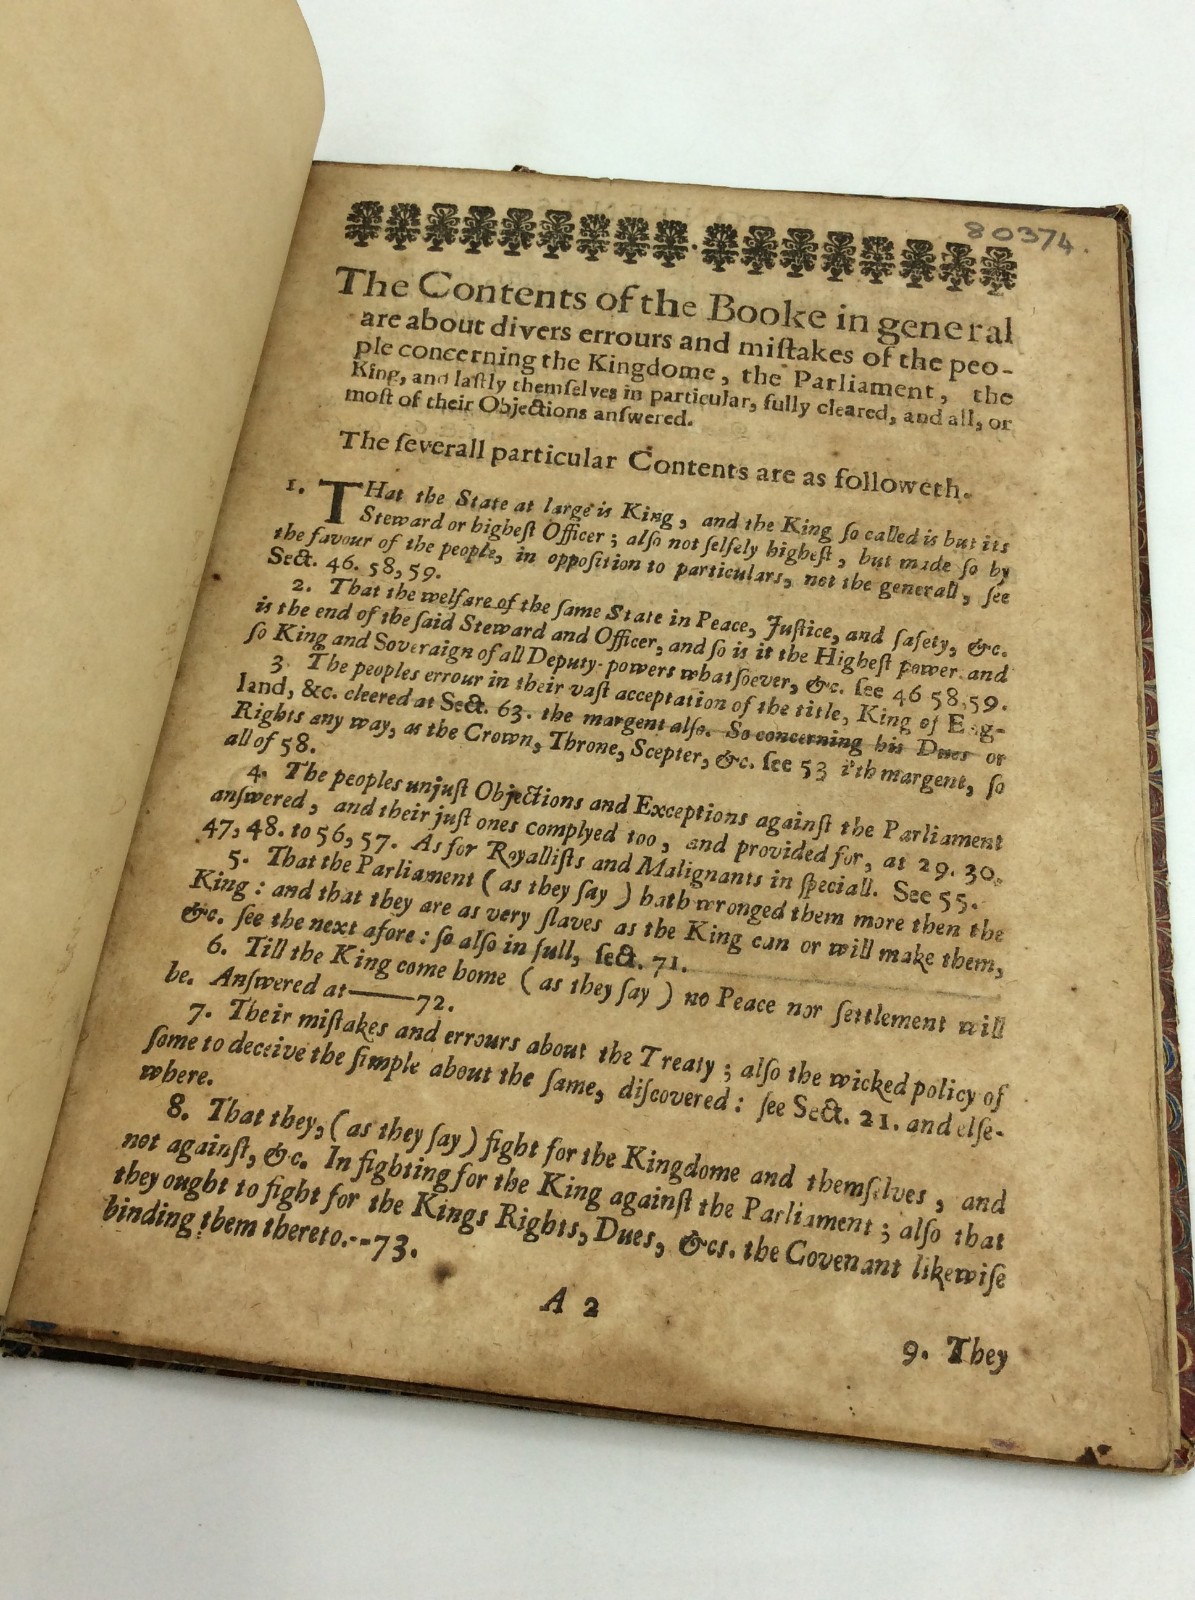 80374.
The Contents of the Booke in general
are about divers errours and miſtakes of the peo-
ple concerning the Kingdome, the Parliament, the
King, and laſtly themſelves in particular, fully cleared, and all, or
moſt of their Objections anſwered.
The ſeverall particular Contents are as followeth.
1. THat the State at large is King, and the King ſo called is but its
Steward or higheſt Officer; alſo not ſelfely higheſt, but made ſo by
the favour of the people, in oppoſition to particulars, not the generall, ſee
Sect. 46. 58, 59.
2. That the welfare of the ſame State in Peace, Juſtice, and ſafety, &c.
is the end of the ſaid Steward and Officer, and ſo is it the Higheſt power and
ſo King and Soveraign of all Deputy-powers whatſoever, &c. ſee 46 58,59.
3 The peoples errour in their vaſt acceptation of the title, King of Eng-
land, &c. cleered at Sect. 63. the margent alſo. So concerning his Dues or
Rights any way, as the Crown, Throne, Scepter, &c. ſee 53 i'th margent, ſo
all of 58.
4. The peoples unjuſt Objections and Exceptions againſt the Parliament
anſwered, and their juſt ones complyed too, and provided for, at 29. 30.
47, 48. to 56, 57. As for Royalliſts and Malignants in ſpeciall. See 55.
5. That the Parliament (as they ſay) hath wronged them more then the
King: and that they are as very ſlaves as the King can or will make them,
&c. ſee the next afore: ſo alſo in full, ſect. 71.
6. Till the King come home (as they ſay) no Peace nor ſettlement will
be. Anſwered at——72.
7. Their miſtakes and errours about the Treaty; alſo the wicked policy of
ſome to deceive the ſimple about the ſame, diſcovered: ſee Sect. 21. and elſe-
where.
8. That they, (as they ſay) fight for the Kingdome and themſelves, and
not againſt, &c. In fighting for the King againſt the Parliament; alſo that
they ought to fight for the Kings Rights, Dues, &cs. the Covenant likewiſe
binding them thereto.--73.
A 2
9. They